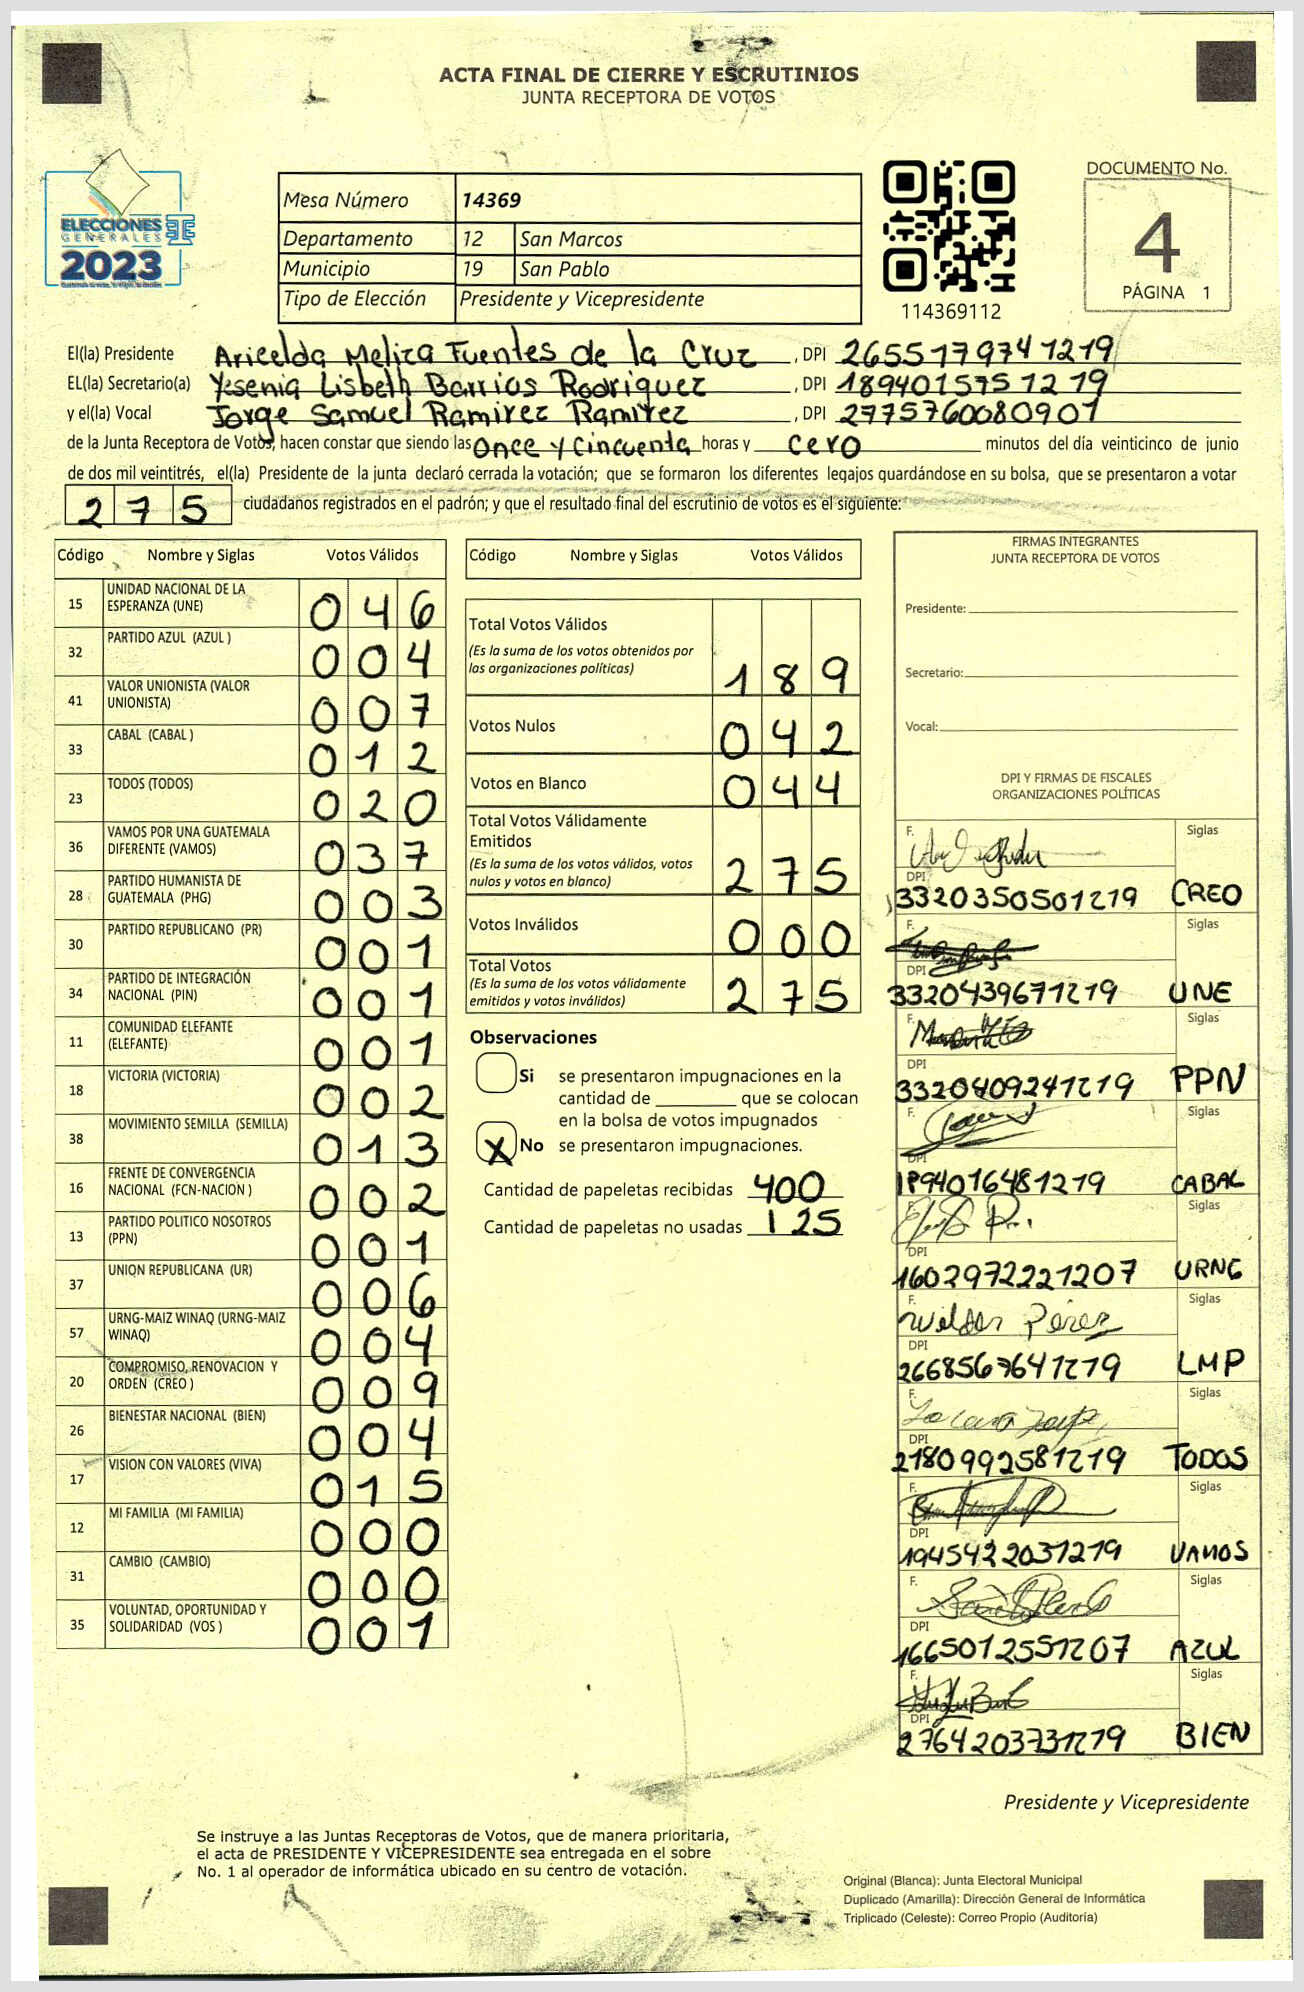 ACTA FINAL DE CIERRE Y ESCRUTINIOS
JUNTA RECEPTORA DE VOTOS
ELECCIONES
GENERALES
2023
Mesa Número 14369
Departamento 12 San Marcos
Municipio 19 San Pablo
Tipo de Elección Presidente y Vicepresidente
114369112
DOCUMENTO No.
4
PÁGINA 1
El(la) Presidente Aricelda Meliza Fuentes de la Cruz, DPI 2655179741219
EL(la) Secretario(a) Yesenia Lisbeth Barrios Rodriguez, DPI 1894015751219
y el(la) Vocal Jorge Samuel Ramirez Ramirez, DPI 2775760080901
de la Junta Receptora de Votos, hacen constar que siendo las Once y Cincuenta horas y cero minutos del día veinticinco de junio
de dos mil veintitrés, el(la) Presidente de la junta declaró cerrada la votación; que se formaron los diferentes legajos guardándose en su bolsa, que se presentaron a votar
275 ciudadanos registrados en el padrón; y que el resultado final del escrutinio de votos es el siguiente:
Código Nombre y Siglas Votos Válidos
15 UNIDAD NACIONAL DE LA ESPERANZA (UNE) 046
32 PARTIDO AZUL (AZUL ) 004
41 VALOR UNIONISTA (VALOR UNIONISTA) 007
33 CABAL (CABAL ) 012
23 TODOS (TODOS) 020
36 VAMOS POR UNA GUATEMALA DIFERENTE (VAMOS) 037
28 PARTIDO HUMANISTA DE GUATEMALA (PHG) 003
30 PARTIDO REPUBLICANO (PR) 001
34 PARTIDO DE INTEGRACIÓN NACIONAL (PIN) 001
11 COMUNIDAD ELEFANTE (ELEFANTE) 001
18 VICTORIA (VICTORIA) 002
38 MOVIMIENTO SEMILLA (SEMILLA) 013
16 FRENTE DE CONVERGENCIA NACIONAL (FCN-NACION ) 002
13 PARTIDO POLITICO NOSOTROS (PPN) 001
37 UNION REPUBLICANA (UR) 006
57 URNG-MAIZ WINAQ (URNG-MAIZ WINAQ) 004
20 COMPROMISO, RENOVACION Y ORDEN (CREO ) 009
26 BIENESTAR NACIONAL (BIEN) 004
17 VISION CON VALORES (VIVA) 015
12 MI FAMILIA (MI FAMILIA) 000
31 CAMBIO (CAMBIO) 000
35 VOLUNTAD, OPORTUNIDAD Y SOLIDARIDAD (VOS ) 001
Código Nombre y Siglas Votos Válidos
Total Votos Válidos
(Es la suma de los votos obtenidos por
las organizaciones políticas) 189
Votos Nulos 042
Votos en Blanco 044
Total Votos Válidamente
Emitidos
(Es la suma de los votos válidos, votos
nulos y votos en blanco) 275
Votos Inválidos 000
Total Votos
(Es la suma de los votos válidamente
emitidos y votos inválidos) 275
Observaciones
Si se presentaron impugnaciones en la
cantidad de ________ que se colocan
en la bolsa de votos impugnados
X No se presentaron impugnaciones.
Cantidad de papeletas recibidas 400
Cantidad de papeletas no usadas 125
FIRMAS INTEGRANTES
JUNTA RECEPTORA DE VOTOS
Presidente:
Secretario:
Vocal:
DPI Y FIRMAS DE FISCALES
ORGANIZACIONES POLÍTICAS
F. Siglas
DPI
3320350501219 CREO
F. Siglas
DPI
3320439671219 UNE
F. Siglas
DPI
3320409241219 PPN
F. Siglas
DPI
1894016481219 CABAL
F. Siglas
DPI
1602972221207 URNG
F. Wilder Pérez Siglas
DPI
2668567641219 LMP
F. Siglas
DPI
2180992581219 TODOS
F. Siglas
DPI
1945422031219 VAMOS
F. Siglas
DPI
1665012551207 AZUL
F. Siglas
DPI
2764203731219 BIEN
Presidente y Vicepresidente
Se instruye a las Juntas Receptoras de Votos, que de manera prioritaria,
el acta de PRESIDENTE Y VICEPRESIDENTE sea entregada en el sobre
No. 1 al operador de informática ubicado en su centro de votación.
Original (Blanca): Junta Electoral Municipal
Duplicado (Amarilla): Dirección General de Informática
Triplicado (Celeste): Correo Propio (Auditoría)